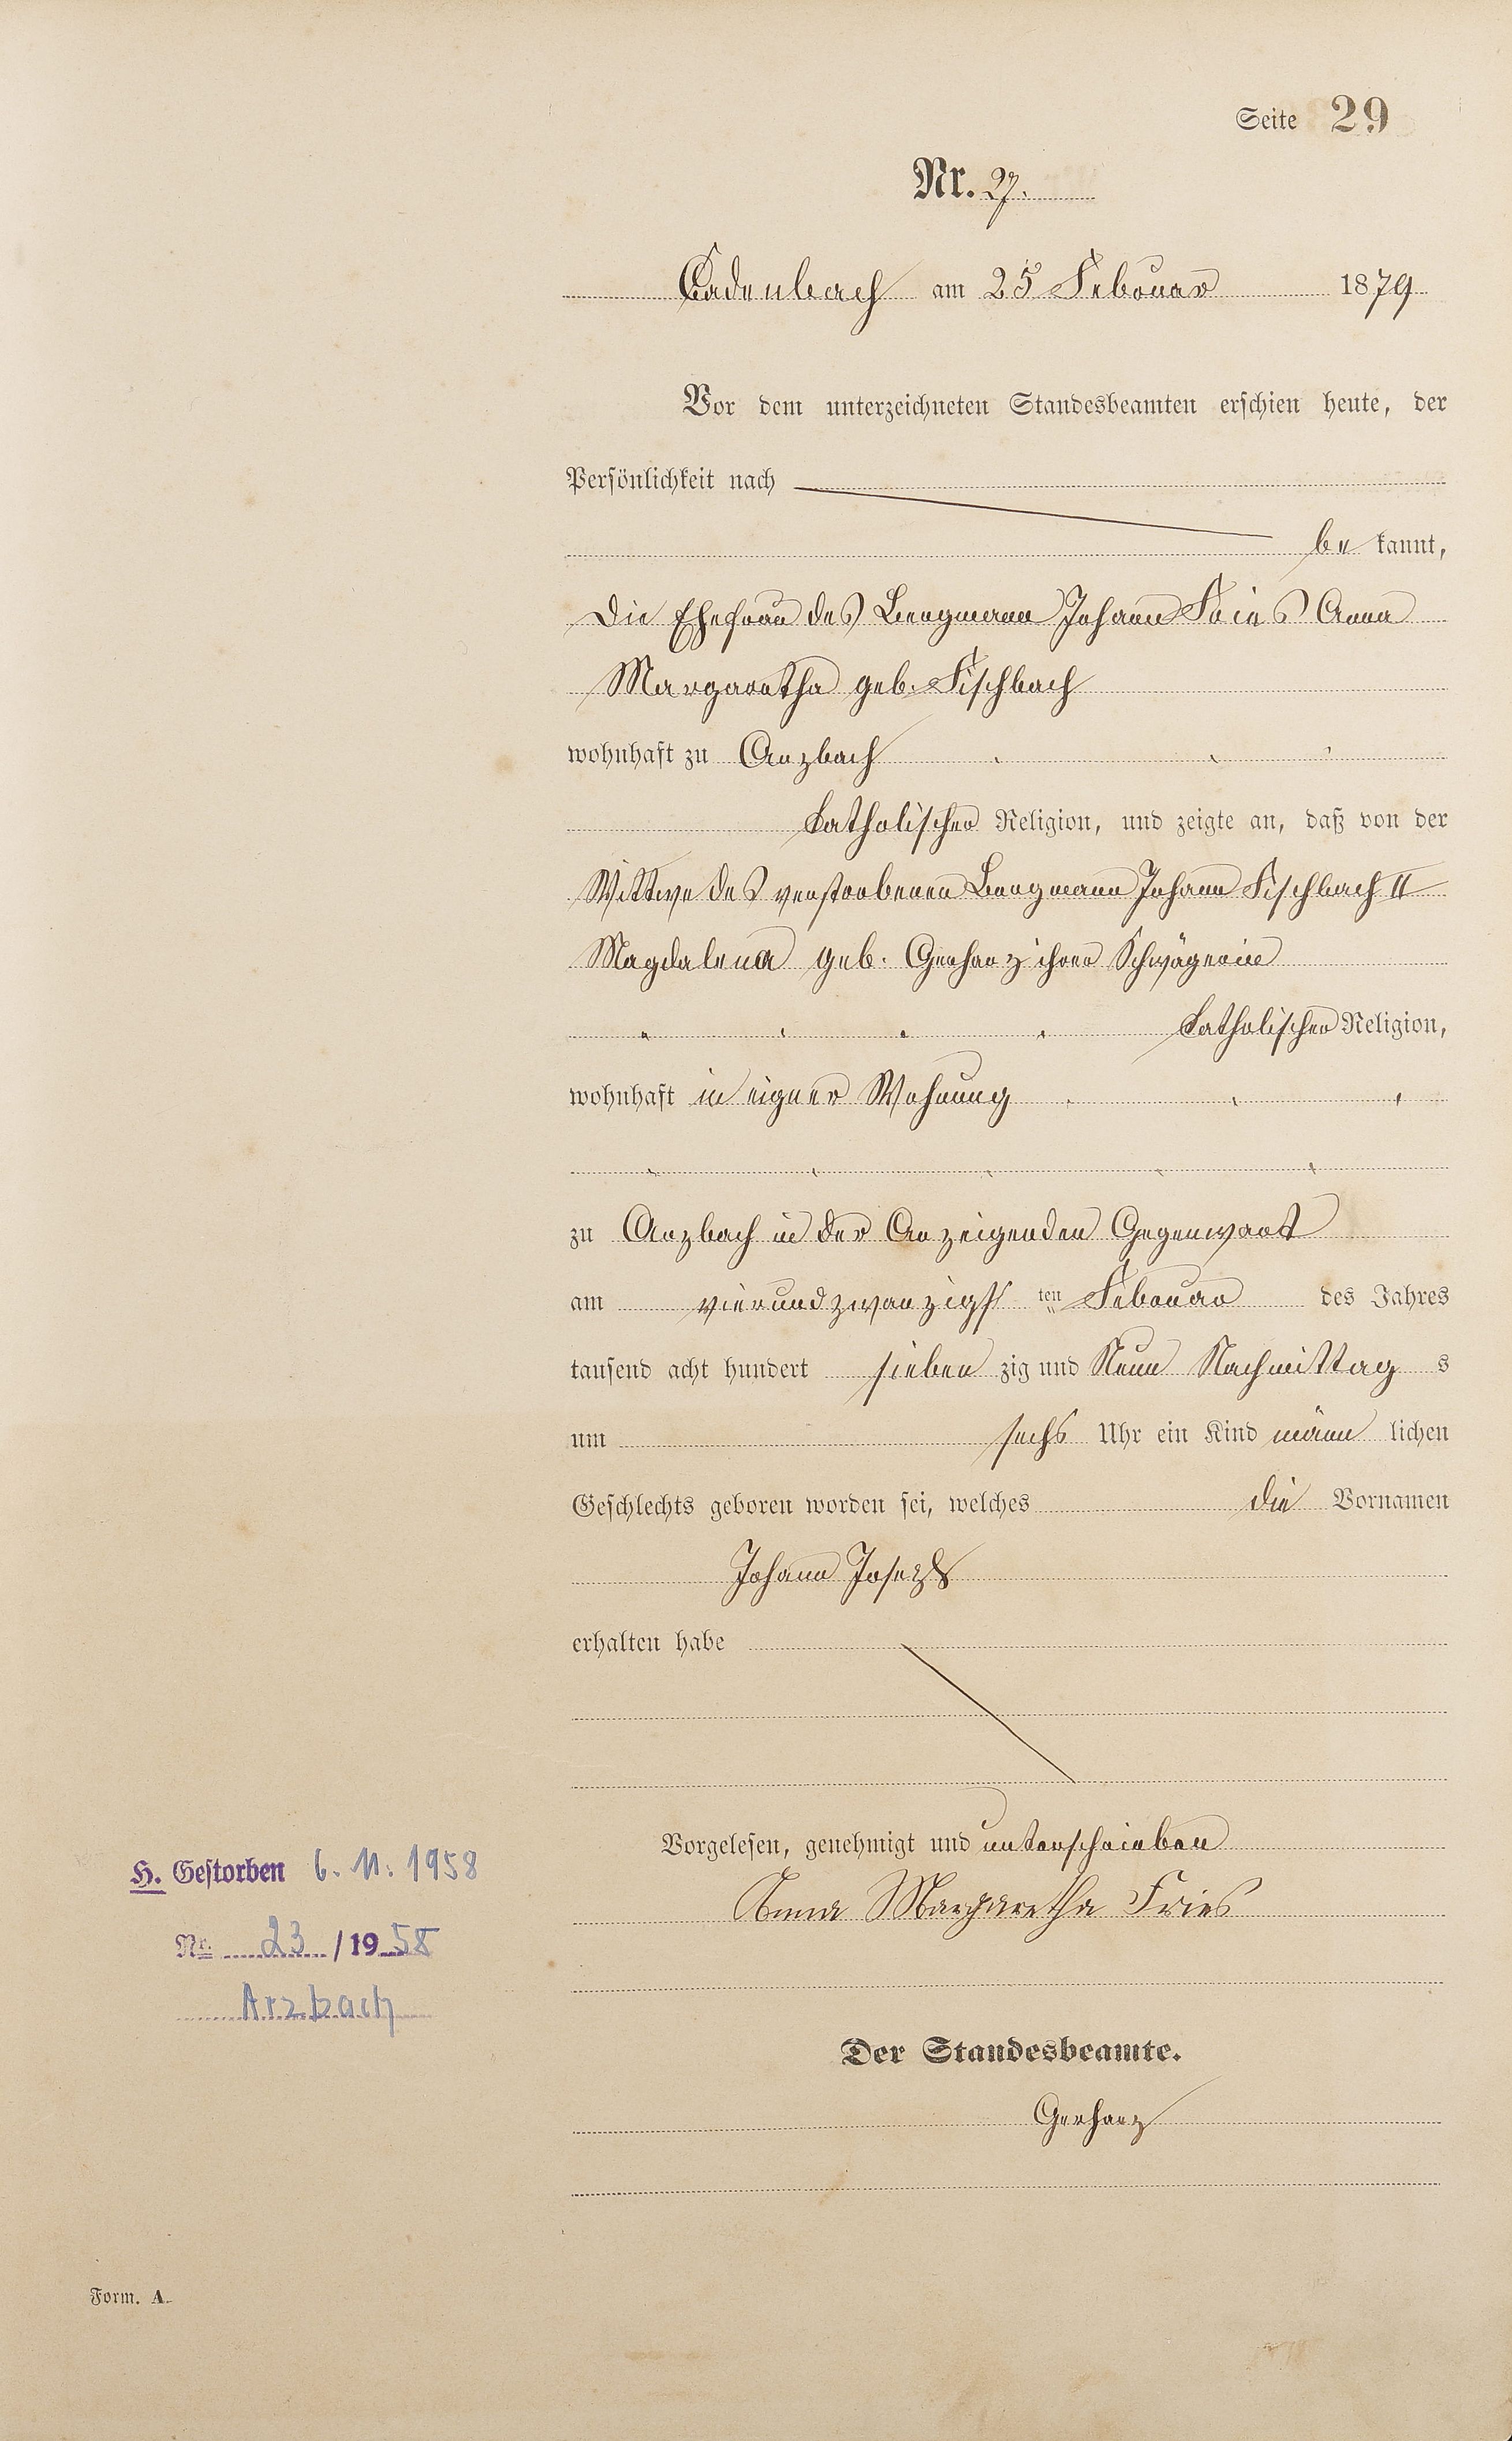 Seite 29
Nr. 27.
Cadenbach am 25 Februar 1879
Vor dem unterzeichneten Standesbeamten erschien heute, der
Persönlichkeit nach
be kannt,
Die Ehefrau des Bergmann Johann Fries Anna
Margaretha geb. Fischbach
wohnhaft zu Arzbach
katholischer Religion, und zeigte an, daß von der
Wittwe des verstorbenen Bergmann Johann Fischbach II
Magdalena geb. Gerharz ihrer Schwägerin
katholischer Religion,
wohnhaft in eigner Wohnung
zu Arzbach in der Anzeigenden Gegenwart
am vierundzwanzigs ten Februar des Jahres
tausend acht hundert sieben zig und Neun Nachmittag s
um sechs Uhr ein Kind männ lichen
Geschlechts geboren worden sei, welches die Vornamen
Johann Joseph
erhalten habe
Vorgelesen, genehmigt und unterschrieben
Anna Margaretha Fries
H. Gestorben 6. 11. 1958
Nr. 23 / 19 58
Arzbach
Der Standesbeamte.
Gerharz
Form. A.